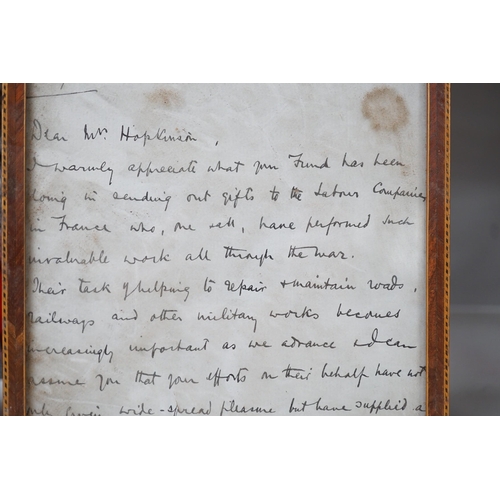 Dear Mr. Hopkinson,
I warmly appreciate what your Fund has been
doing in sending out gifts to the Labour Companies
in France who, one & all, have performed such
invaluable work all through the war.
Their task of helping to repair & maintain roads,
railways and other military works becomes
increasingly important as we advance & I can
assure you that your efforts on their behalf have not
only given wide-spread pleasure but have supplied a